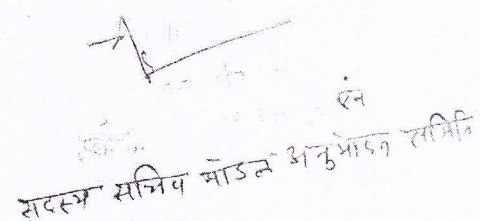 एवं
सदस्य सचिव मॉडल अनुमोदन समिति